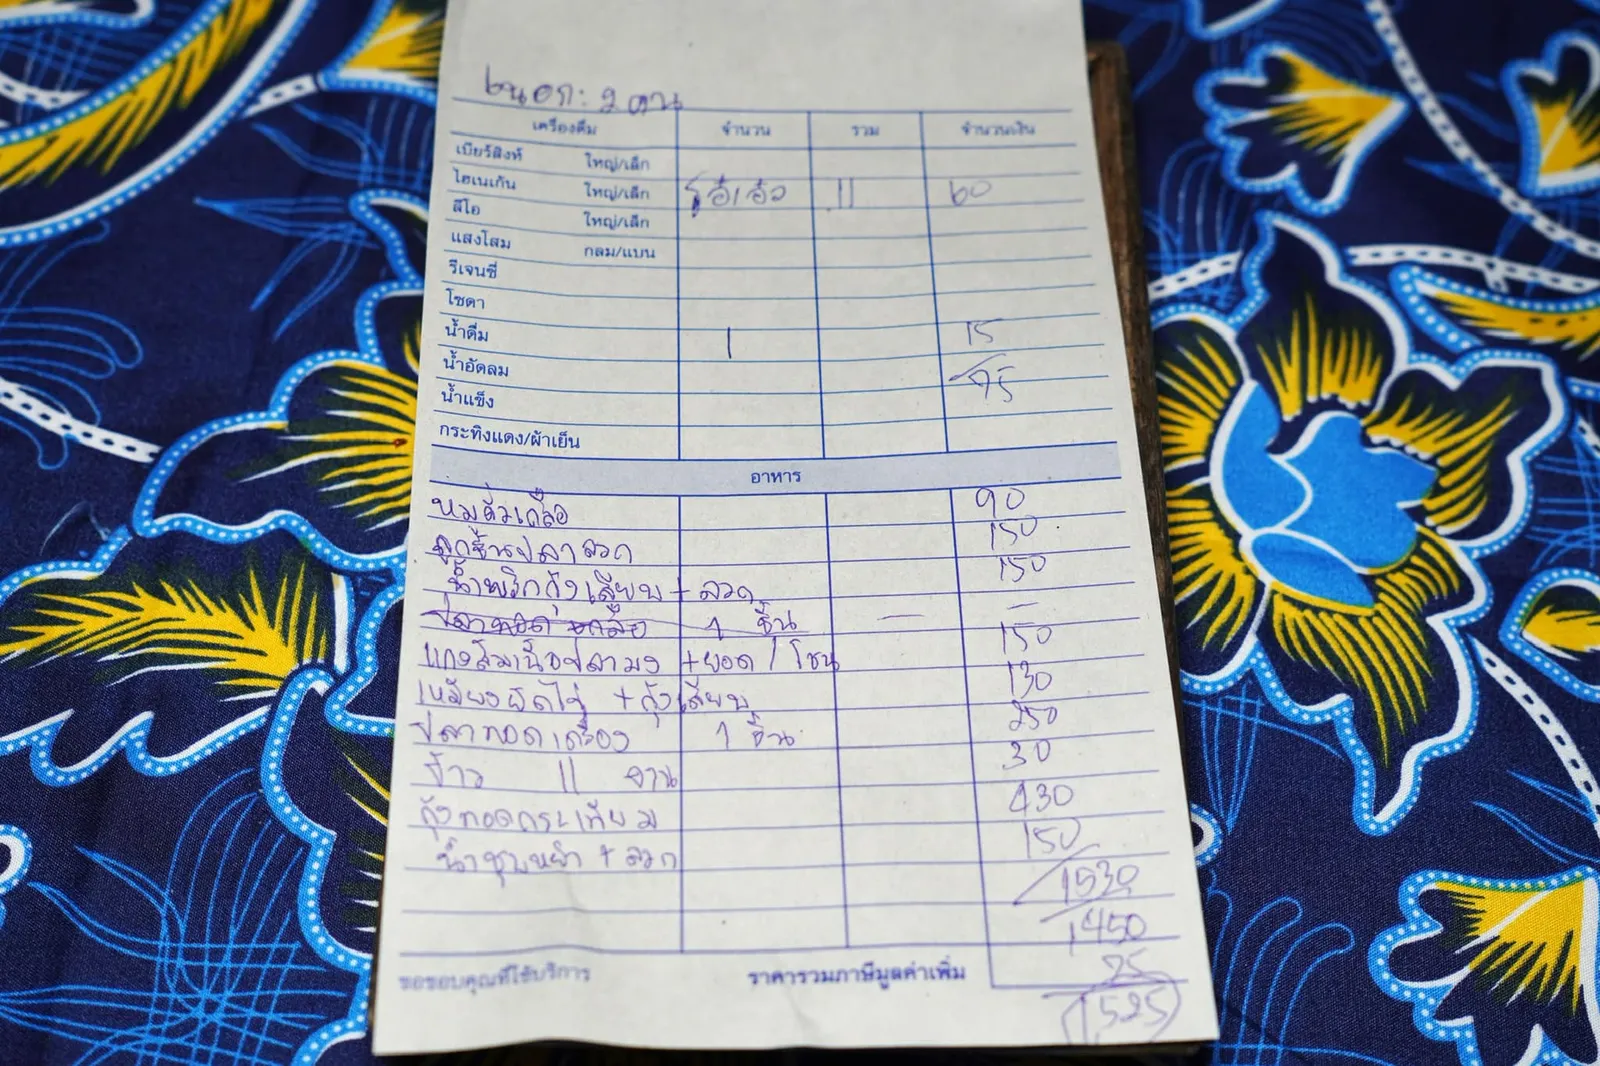 2 จาน
เครื่องดื่ม จำนวน รวม จำนวนเงิน
เบียร์สิงห์ ใหญ่/เล็ก
ไฮเนเก้น ใหญ่/เล็ก โอ๋เอ๋ว || 60
ลีโอ ใหญ่/เล็ก
แสงโสม กลม/แบน
รีเจนซี่
โซดา
น้ำดื่ม 1 15
น้ำอัดลม 75
น้ำแข็ง
กระทิงแดง/ผ้าเย็น
อาหาร
หมคั่วเกลือ 90
ลูกชิ้นปลาลวก 150
น้ำพริกกุ้งเสียบ + ลวก 150
ปลาทอดเกลือ 1 ชิ้น — —
แกงส้มเนื้อปลามง +ยอด / โชน 150
เหมียงผัดไข่ + กุ้งเสียบ 130
ปลาทอดเครื่อง 1 ชิ้น 250
ข้าว || จาน 30
กุ้งทอดกระเทียม 430
น้ำชุบหยำ + ลวก 150
1530
1450
75
1,525
ขอขอบคุณที่ใช้บริการ ราคารวมภาษีมูลค่าเพิ่ม